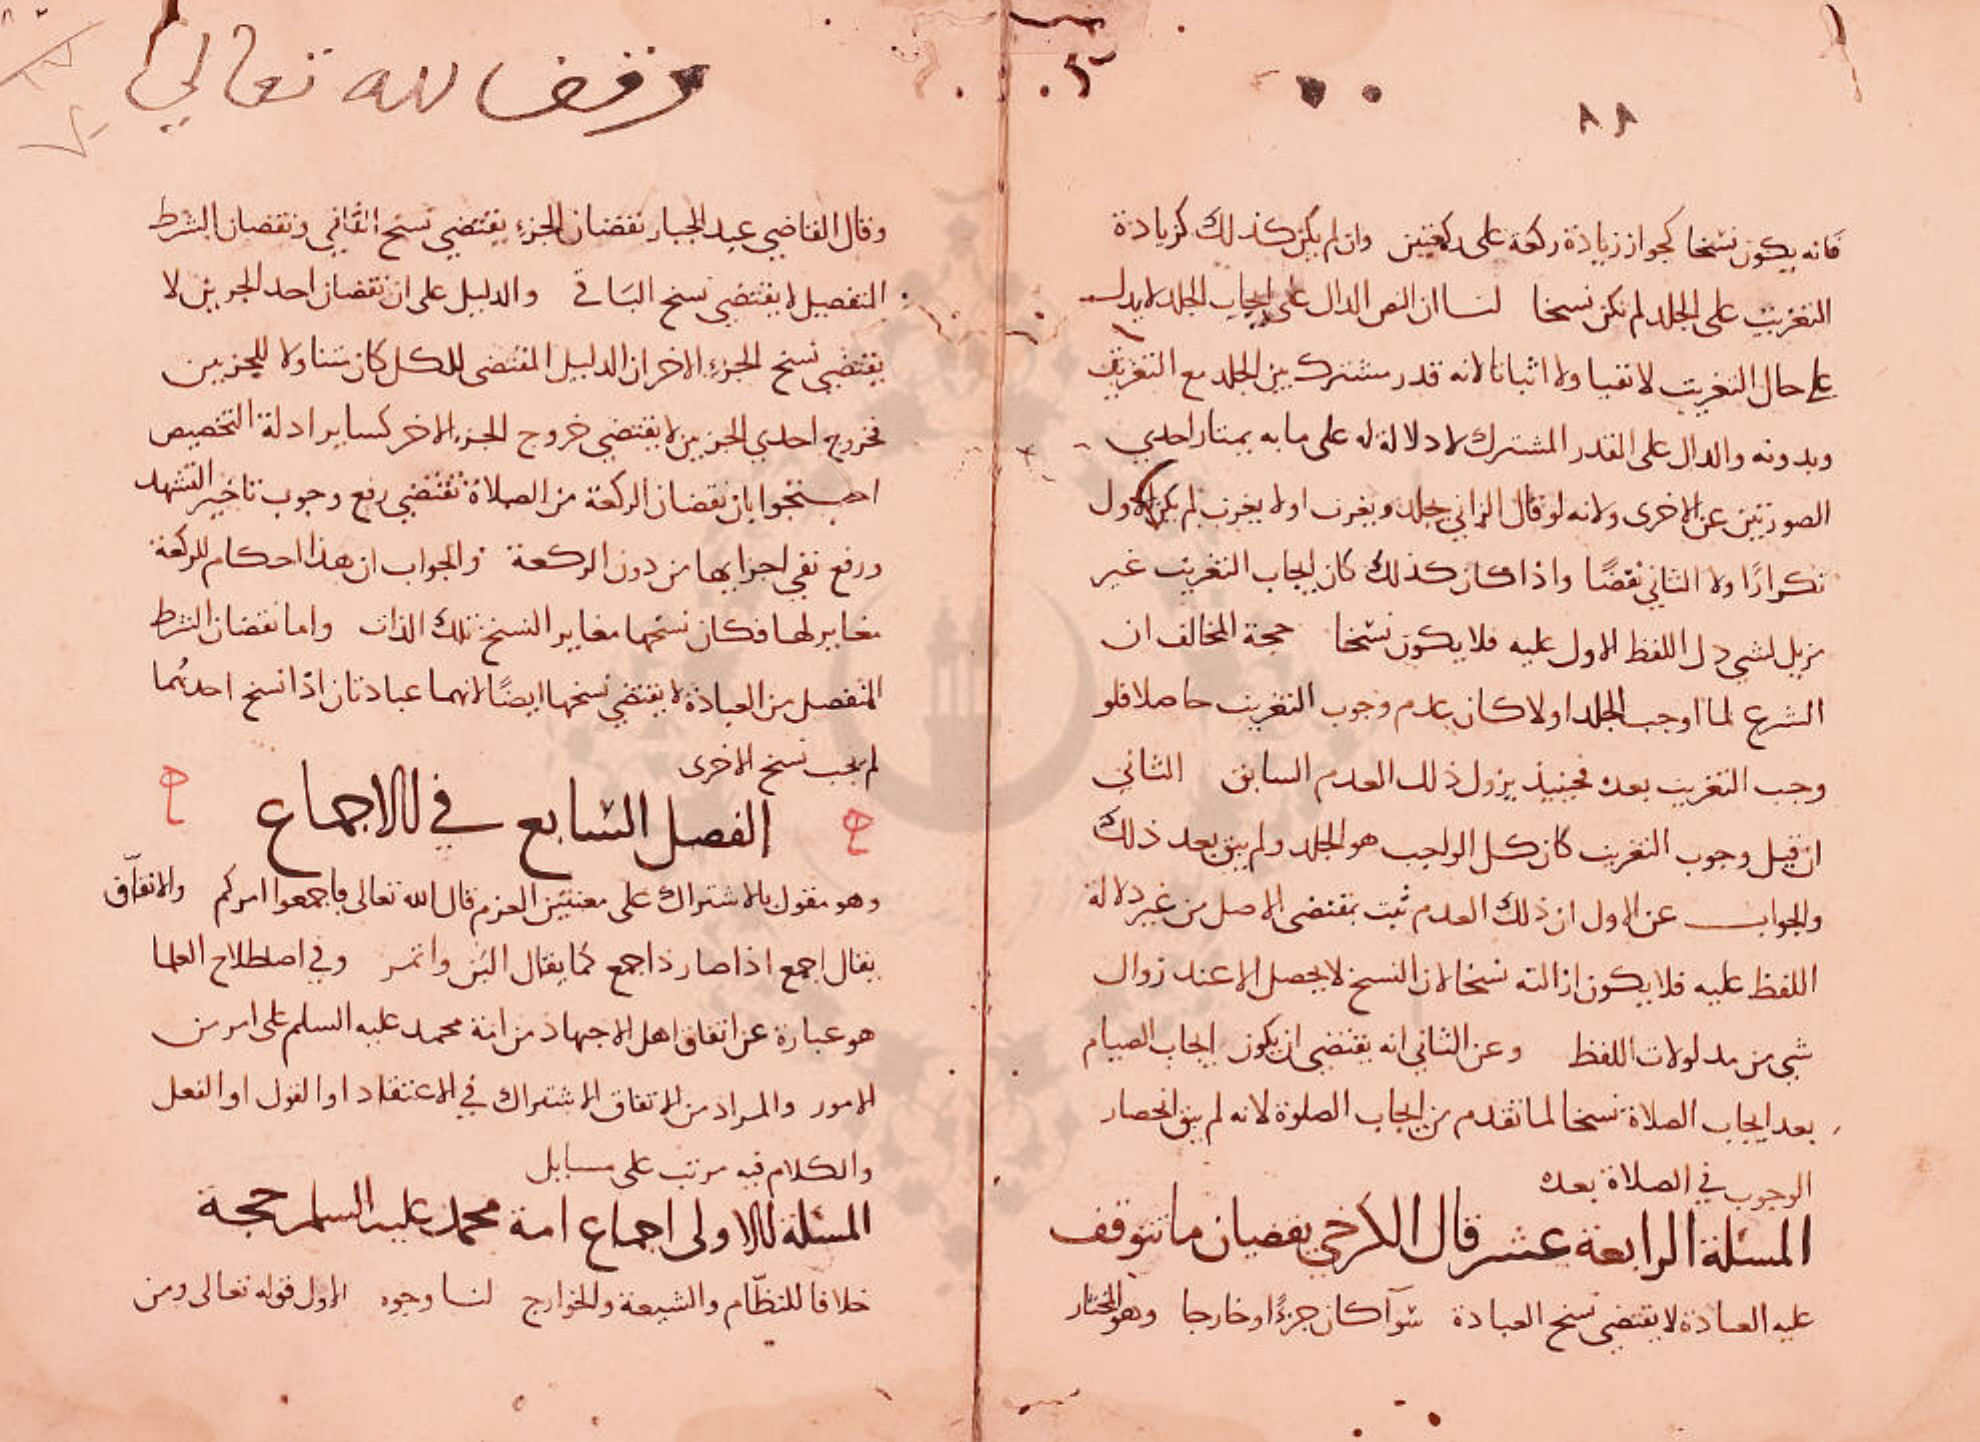 ٨٨
فانه يكون نسخا كجواز زيادة ركعة على ركعتين وان لم يكن كذلك كزيادة
التغريب على الجلد لم تكن نسخا لنا ان النص الدال على ايجاب الجلد لا يدل
على حال التغريب لا نفيا ولا اثباتا لانه قدر مشترك بين الجلد مع التغريب
وبدونه والدال على القدر المشترك لا دلالة له على ما به يمتاز احدي
الصورتين عن الاخرى ولانه لو قال الزاني يجلد ويغرب او لا يغرب لم يكن الاول
تكرارًا ولا الثاني نقضًا واذا كان كذلك كان ايجاب التغريب غير
مزيل لشي دل اللفظ الاول عليه فلا يكون نسخا حجة المخالف ان
الشرع لما اوجب الجلد اولا كان عدم وجوب التغريب حاصلا فلو
وجب التغريب بعده فحينيذ يزول ذلك العدم السابق الثاني
ان قبل وجوب التغريب كان كل الواجب هو الجلد ولم يبق بعد ذلك
والجواب عن الاول ان ذلك العدم ثبت بمقتضى الاصل من غير دلالة
اللفظ عليه فلا يكون ازالته نسخا لان النسخ لا يحصل الا عند زوال
شي من مدلولات اللفظ وعن الثاني انه يقتضى ان يكون ايجاب الصيام
بعد ايجاب الصلاة نسخا لما تقدم من ايجاب الصلوة لانه لم يبق انحصار
الوجوب في الصلاة بعده
المسئلة الرابعة عشر قال الكرخي نقصان ما تتوقف
عليه العبادة لا يقتضى نسخ العبادة سوآ كان جزءًا او خارجا وهو المختار
وقف لله تعالى
وقال القاضي عبد الجبار نقصان الجزء يقتضي نسخ الباقي ونقصان الشرط
المنفصل لا يقتضى نسخ الباقي والدليل على ان نقصان احد الجزين لا
يقتضي نسخ الجزء الاخر ان الدليل المقتضى للكل كان متناولا للجزيين
فخروج احدي الجزيين لا يقتضي خروج الجزء الاخر كساير ادلة التخصيص
احتجوا بان نقصان الركعة من الصلاة تقتضي رفع وجوب تاخير التشهد
ورفع نفي اجزايها من دون الركعة والجواب ان هذا احكام للركعة
مغاير لها فكان نسخها مغاير النسخ تلك الذات واما نقصان الشرط
المنفصل من العبادة لا يقتضي نسخها ايضًا لانهما عبادتان اذا نسخ احدهما
لم يجب نسخ الاخرى
الفصل السابع في الاجماع
وهو مقول بالاشتراك على معنيين العزم قال الله تعالى فاجمعوا امركم والاتفاق
يقال اجمع اذا صار ذا جمع كما يقال البن واتمر وفي اصطلاح العلما
هو عبارة عن اتفاق اهل الاجتهاد من امة محمد عليه السلم على امر من
الامور والمراد من الاتفاق الاشتراك في الاعتقاد او القول او الفعل
والكلام فيه مرتب على مسايل
المسئلة الاولى اجماع امة محمد عليه السلم حجة
خلافا للنظّام والشيعة والخوارج لنا وجوه الاول قوله تعالى ومن